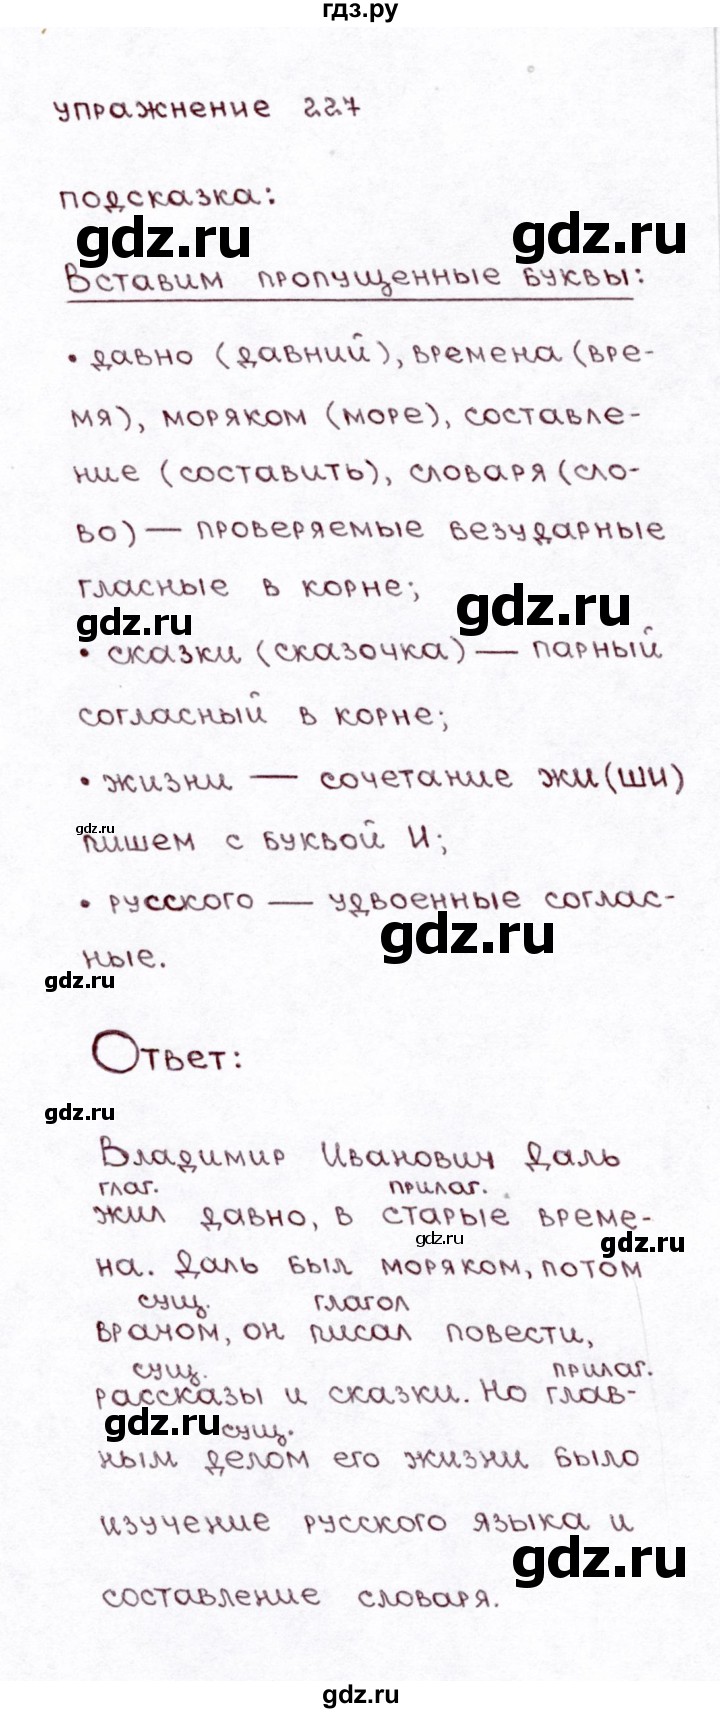 гдз.ру
упражнение 227
подсказка:
gdz.ru
gdz.ru
Вставим пропущенные буквы:
• давно (давний), времена (вре-
мя), моряком (море), составле-
ние (составить), словаря (сло-
во) — проверяемые безударные
гласные в корне;
gdz.ru
gdz.ru
• сказки (сказочка) — парный
согласный в корне;
• жизни — сочетание жи(ши)
gdz.ru
пишем с буквой И;
• русского — удвоенные соглас-
gdz.ru
ные.
gdz.ru
Ответ:
gdz.ru
Владимир Иванович Даль
глаг. прилаг.
жил давно, в старые време-
gdz.ru
gdz.ru
на. Даль был моряком, потом
сущ. глагол
врачом, он писал повести,
сущ. прилаг.
рассказы и сказки. Но глав-
gdz.ru
сущ.
ным делом его жизни было
изучение русского языка и
gdz.ru
составление словаря.
gdz.ru